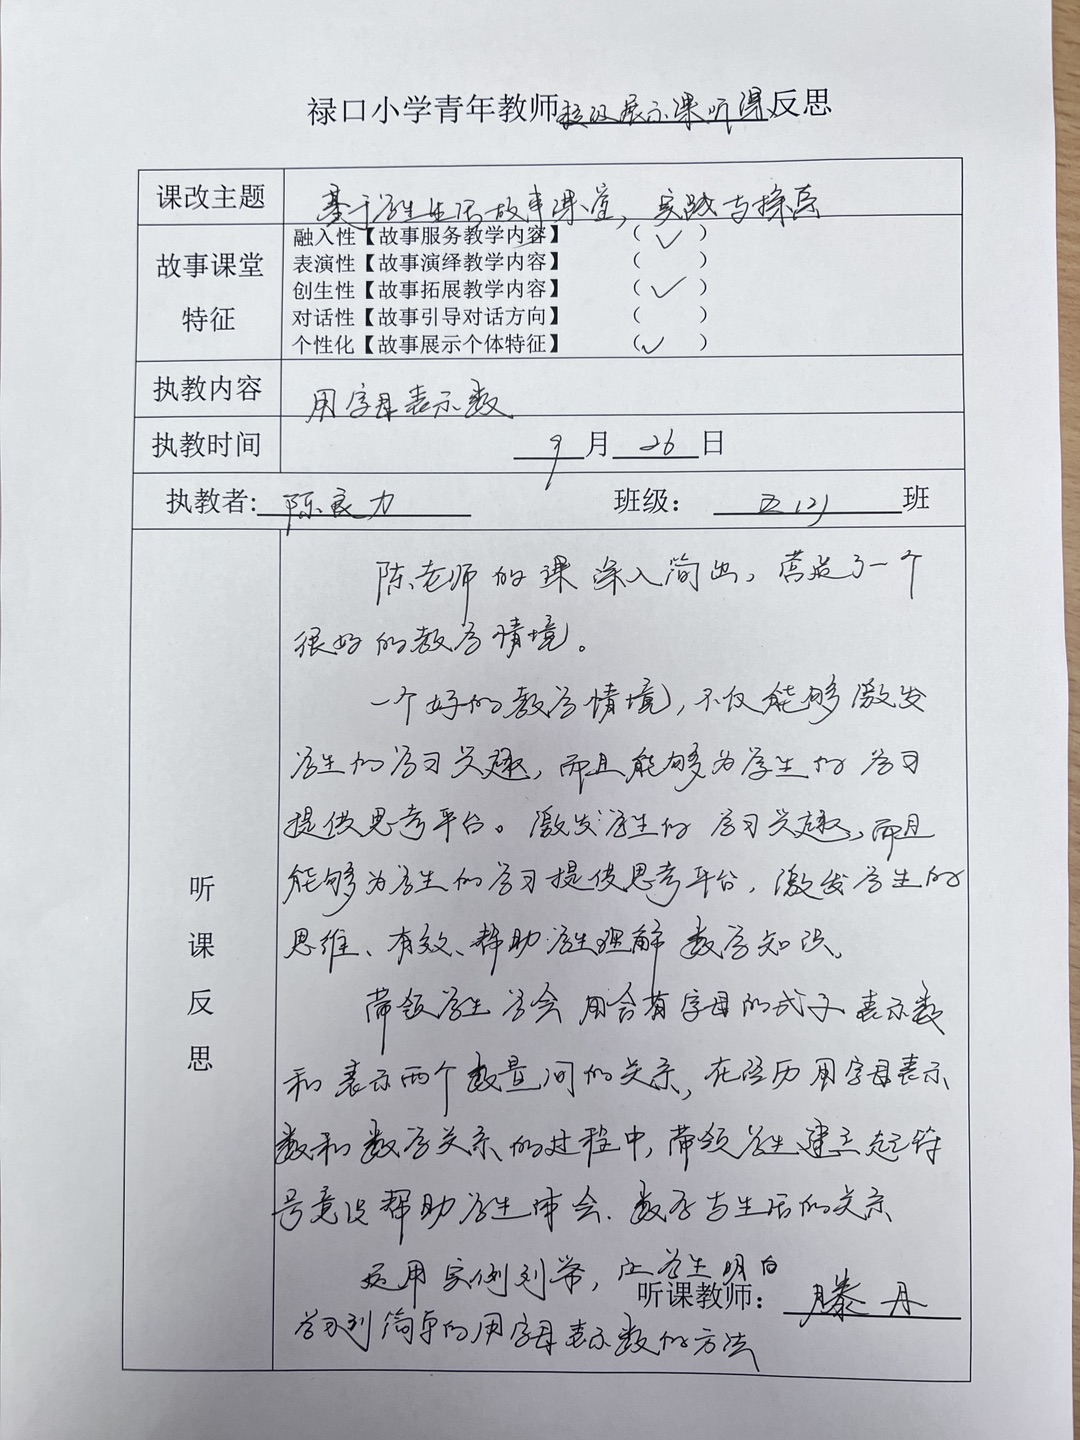 禄口小学青年教师校级展示课听课反思
课改主题 基于学生生活故事课堂，实践与探索
故事课堂特征
融入性【故事服务教学内容】 （ ✓ ）
表演性【故事演绎教学内容】 （ ）
创生性【故事拓展教学内容】 （ ✓ ）
对话性【故事引导对话方向】 （ ）
个性化【故事展示个体特征】 （ ✓ ）
执教内容 用字母表示数
执教时间 9月26日
执教者: 陈良力 班级： 五(2)班
听课反思
陈老师的课深入简出，营造了一个
很好的教学情境。
一个好的教学情境，不仅能够激发
学生的学习兴趣，而且能够为学生的学习
提供思考平台。激发学生的学习兴趣，而且
能够为学生的学习提供思考平台，激发学生的
思维、有效、帮助学生理解数学知识。
带领学生学会用含有字母的式子表示数
和表示两个数量间的关系，在经历用字母表示
数和数学关系的过程中，带领学生建立起符
号意识帮助学生体会、数学与生活的关系
运用实例列举，让学生明白
听课教师： 滕丹
学习到简单的用字母表示数的方法